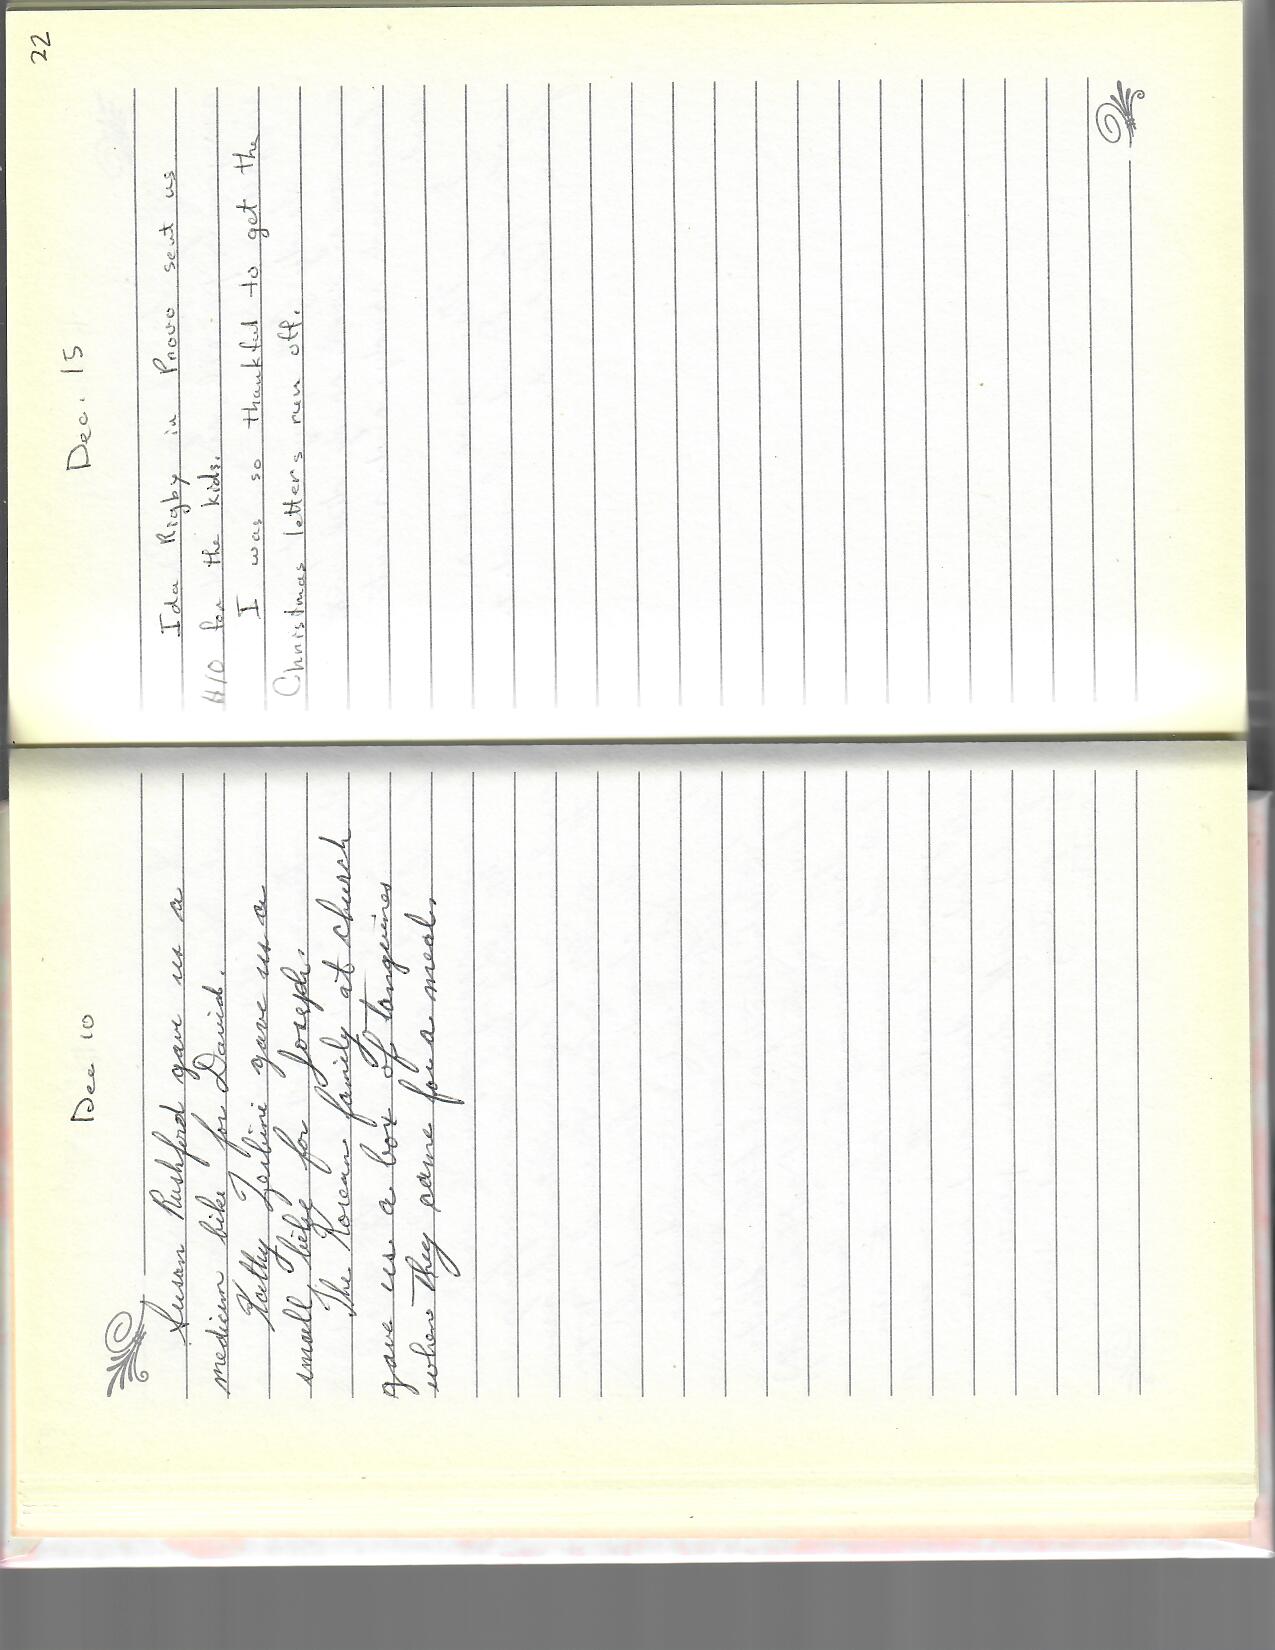 Dec 10
Susan Rushford gave us a
medium bike for David.
Kathy Zerbine gave us a
small bike for Joseph.
The Korean family at church
gave us a box of tangerines
when they came for a meal.
22
Dec. 15
Ida Rigby in Provo sent us
$10 for the kids.
I was so thankful to get the
Christmas letters run off.